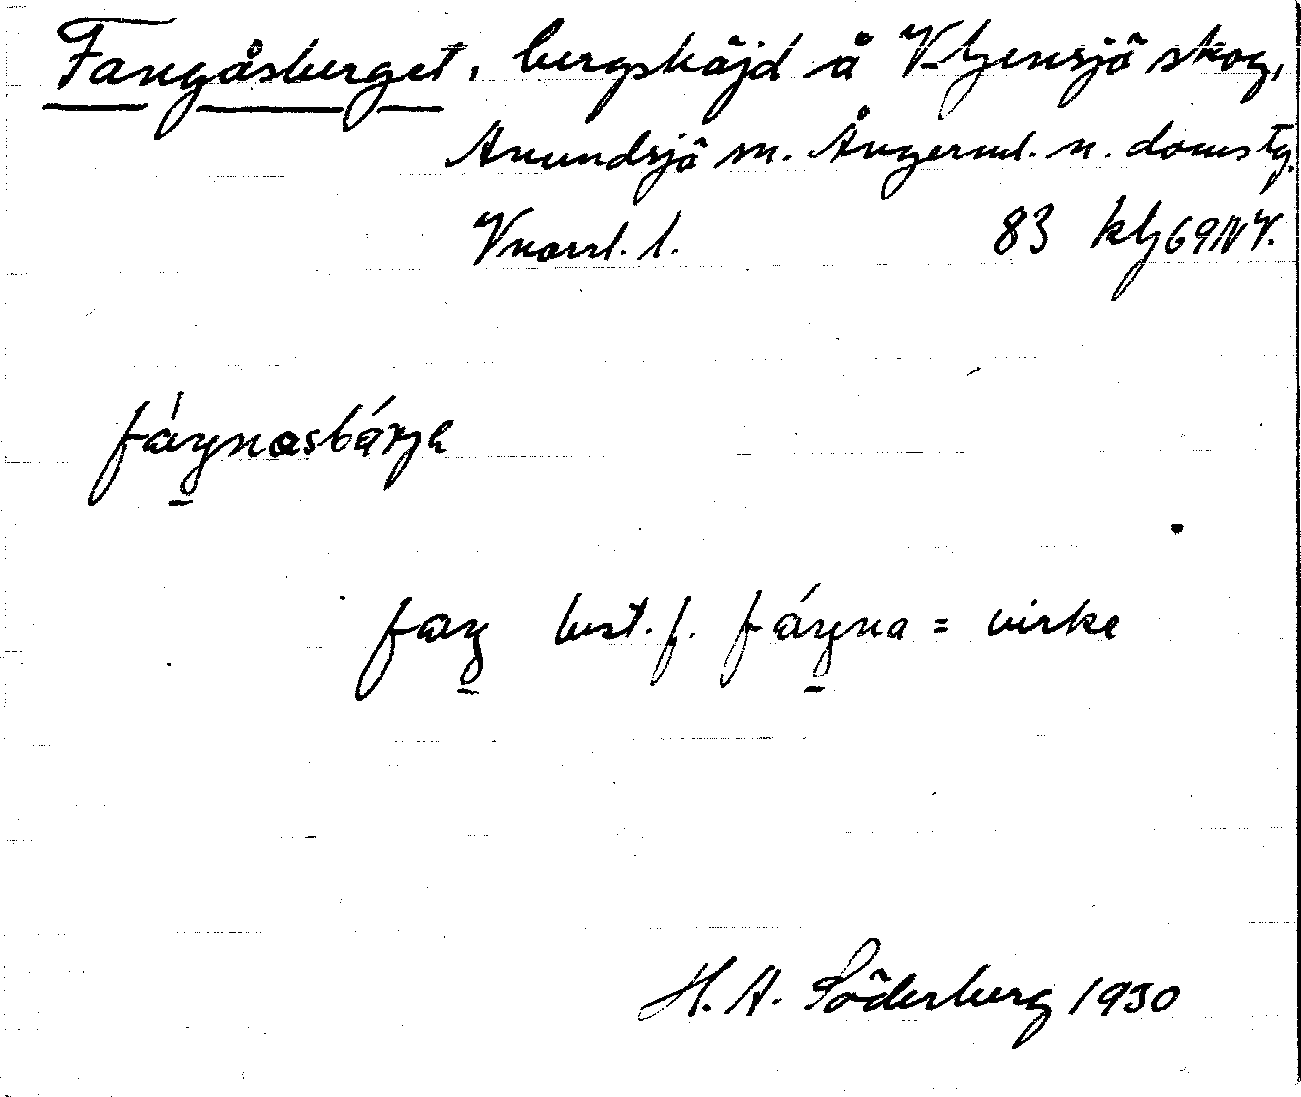 Fangåsberget, bergshöjd å V. Gensjö skog,
Anundsjö sn. Ångerml. n. domstg.
Vnorrl. l. 83 kbl 69 NV.
fáŋnasbárja
faŋ best. f. fáŋna = virke
H. A. Söderberg 1930